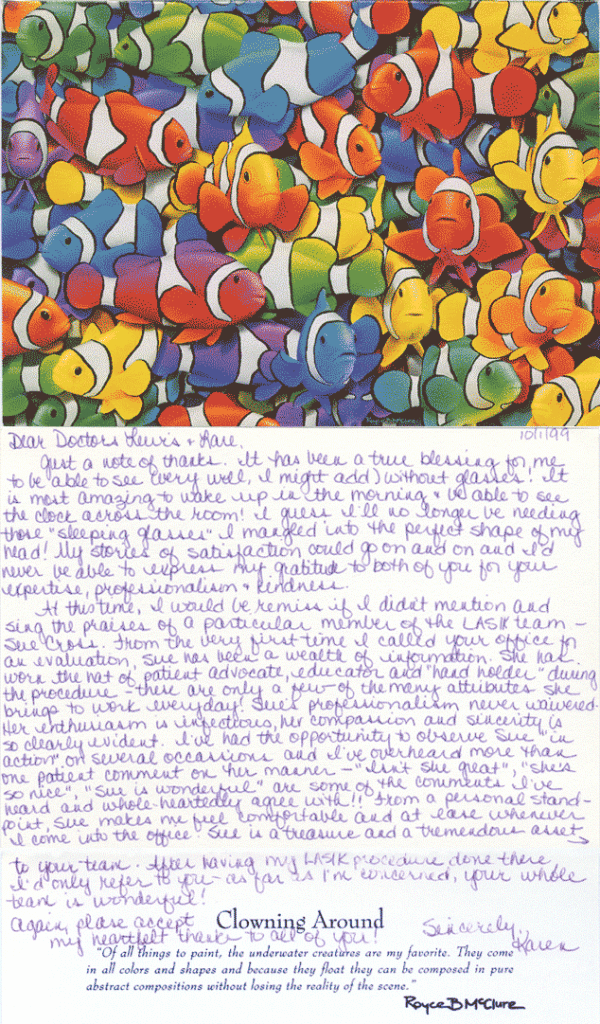 Dear Doctors Lewis + Kare,
10/1/99
Just a note of thanks. It has been a true blessing for me
to be able to see (very well, I might add) without glasses! It
is most amazing to wake up in the morning + be able to see
the clock across the room! I guess I'll no longer be needing
those "sleeping glasses" I mangled into the perfect shape of my
head! My stories of satisfaction could go on and on and I'd
never be able to express my gratitude to both of you for your
expertise, professionalism + kindness.
At this time, I would be remiss if I didn't mention and
sing the praises of a particular member of the LASIK team -
Sue Cross. From the very first time I called your office for
an evaluation, Sue has been a wealth of information. She has
worn the hat of patient advocate, educator and "hand holder" during
the procedure - these are only a few of the many attributes she
brings to work everyday! Sue's professionalism never waivered.
Her enthusiasm is infectious, her compassion and sincerity is
so clearly evident. I've had the opportunity to observe Sue "in
action" on several occassions and I've overheard more than
one patient comment on her manner - "Isn't she great", "she's
so nice", "Sue is wonderful" are some of the comments I've
heard and whole-heartedly agree with!! From a personal stand-
point, Sue makes me feel comfortable and at ease whenever
I come into the office. Sue is a treasure and a tremendous asset
to your team. After having my LASIK procedure done there,
I'd only refer to you - as far as I'm concerned, your whole
team is wonderful!
Again, please accept
my heartfelt thanks to all of you!
Sincerely,
Karen
Clowning Around
"Of all things to paint, the underwater creatures are my favorite. They come
in all colors and shapes and because they float they can be composed in pure
abstract compositions without losing the reality of the scene."
Royce B McClure